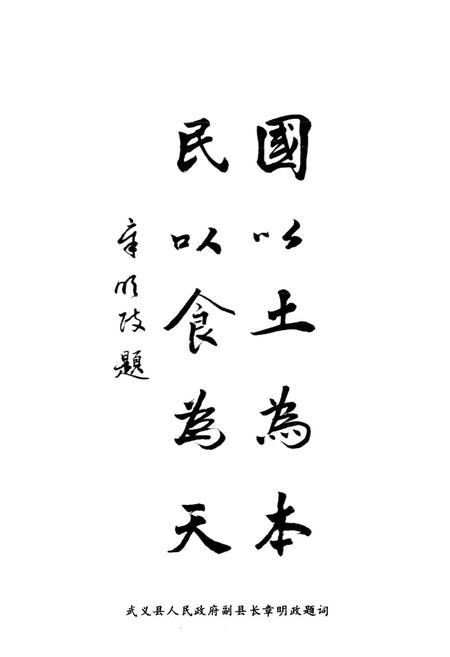 國以土為本
民以食為天
章明政題
武义县人民政府副县长章明政题词